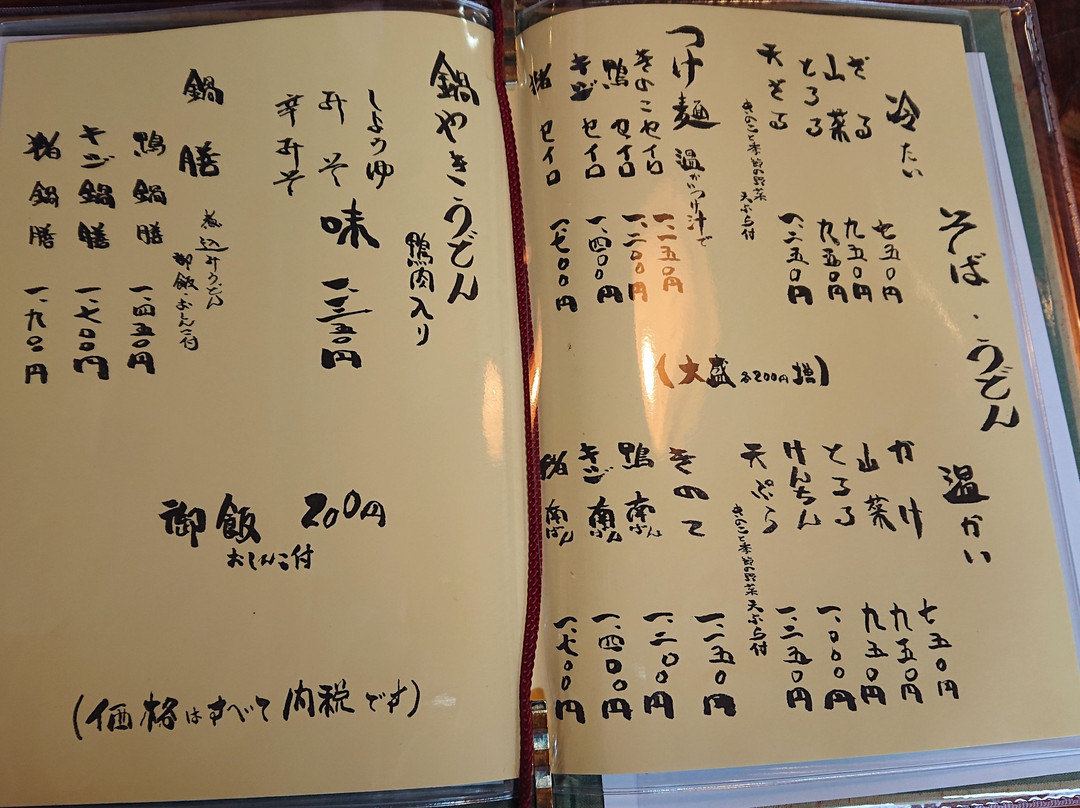 そば・うどん
冷たい
ざる 七五〇円
山菜 九五〇円
とろろ 九五〇円
天ざる 一、二五〇円
きのこと季節の野菜 天ぷら付
つけ麺 温かいつけ汁で
きのこセイロ 一、一五〇円
鴨セイロ 一、二〇〇円
キジセイロ 一、四〇〇円
猪セイロ 一、七〇〇円
(大盛 各200円増)
温かい
かけ 七五〇円
山菜 九五〇円
とろろ 九五〇円
けんちん 一、〇〇〇円
天ぷら 一、二五〇円
きのこと季節の野菜 天ぷら付
きのこ 一、一五〇円
鴨南ばん 一、二〇〇円
キジ南ばん 一、四〇〇円
猪南ばん 一、七〇〇円
鍋やきうどん
鴨肉入り
しょうゆ
みそ 味 一、三五〇円
辛みそ
鍋膳
煮込みうどん
御飯・おしんこ付
鴨鍋膳 一、四五〇円
キジ鍋膳 一、七〇〇円
猪鍋膳 一、九〇〇円
御飯 200円
おしんこ付
(価格はすべて内税です)